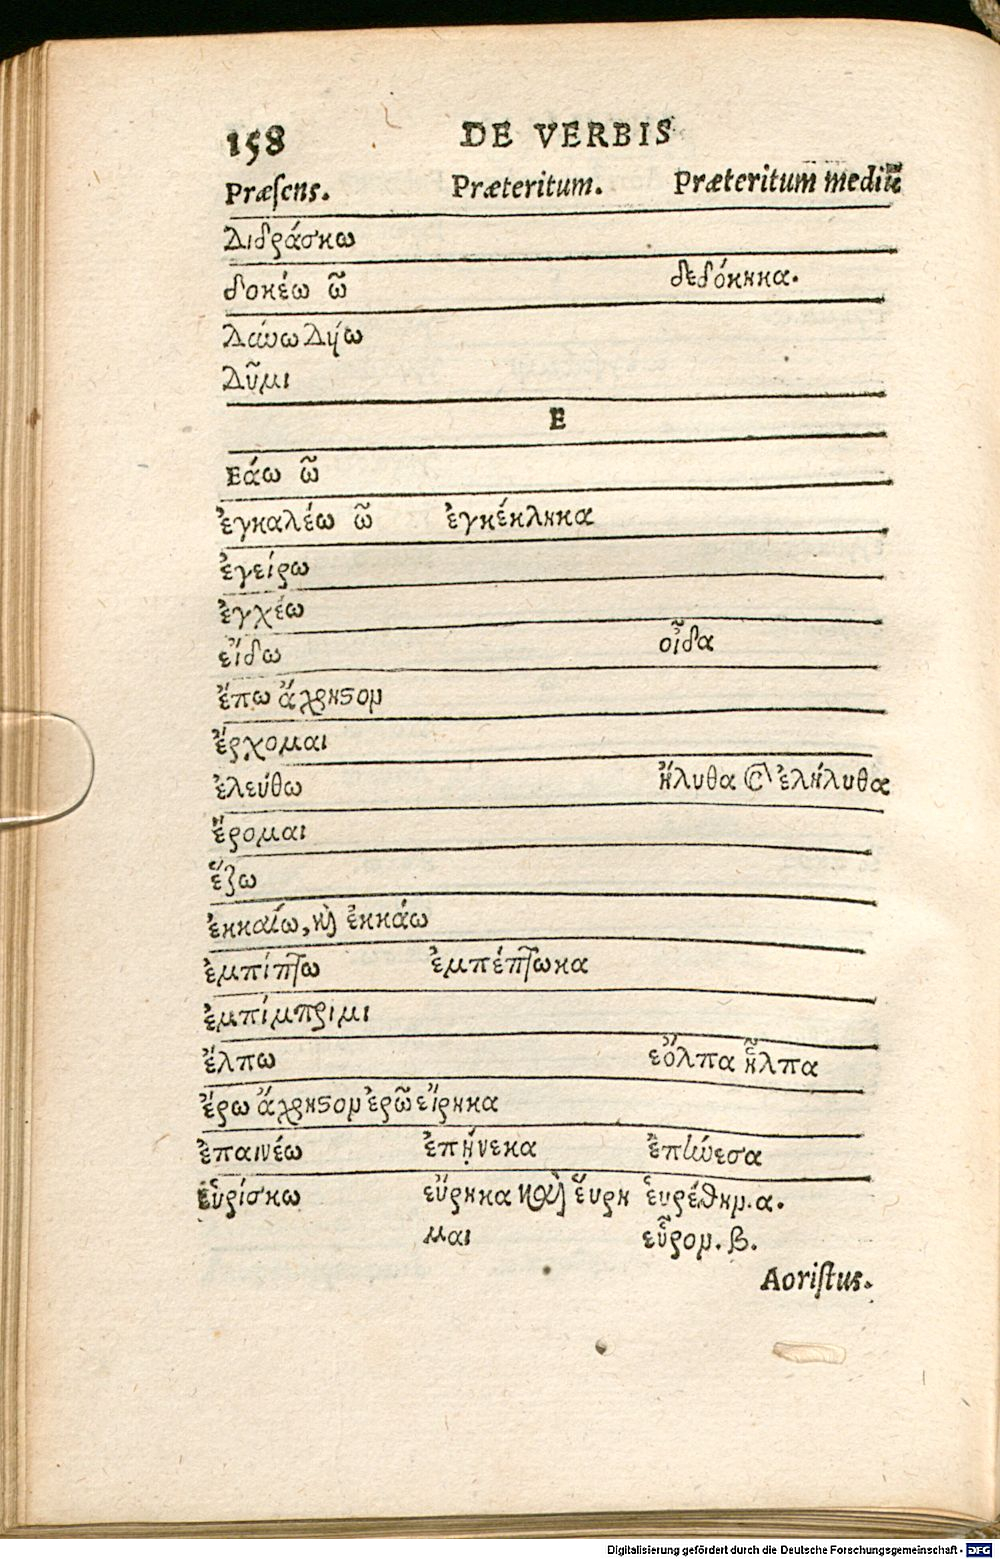 158 DE VERBIS
Præſens. Præteritum. Præteritum mediũ
Διδράσκω
δοκέω ῶ δεδόκηκα.
Δαύω Δήω
Δῦμι
E
Εάω ῶ
ἐγκαλέω ῶ ἐγκέκληκα
ἐγείρω
ἐγχέω
εἴδω οἶδα
ἔπω ἄχρηστον
ἔρχομαι
ἐλεύθω ἤλυθα & ἐλήλυθα
ἔρομαι
ἕζω
ἐκκαίω, καὶ ἐκκάω
ἐμπίπτω ἐμπέπτωκα
ἐμπίμπριμι
ἔλπω εὄλπα ἦλπα
ἔρω ἄχρηστον ἐρῶ εἴρηκα
ἐπαινέω ἐπῄνεκα ἐπῄνεσα
εὑρίσκω εὕρηκα καὶ ἕυρη εὑρέθην. α.
μαι εὗρον. β.
Aoriſtus.
Digitalisierung gefördert durch die Deutsche Forschungsgemeinschaft - DFG